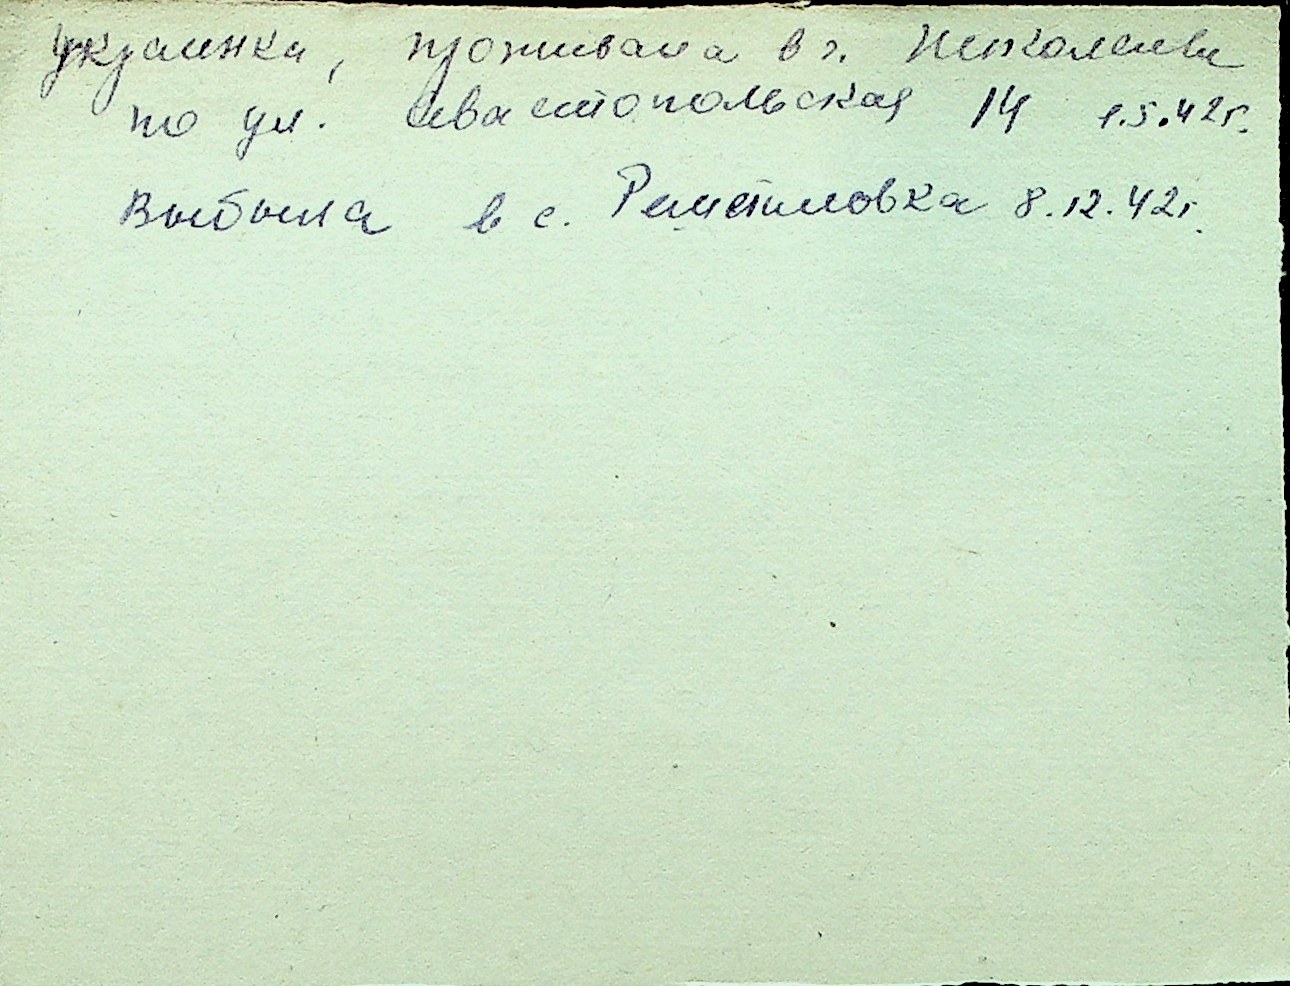 украинка, проживала в г. Николаеве
по ул. Севастопольская 14 1.5.42г.
Выбыла в с. 8.12.42г.